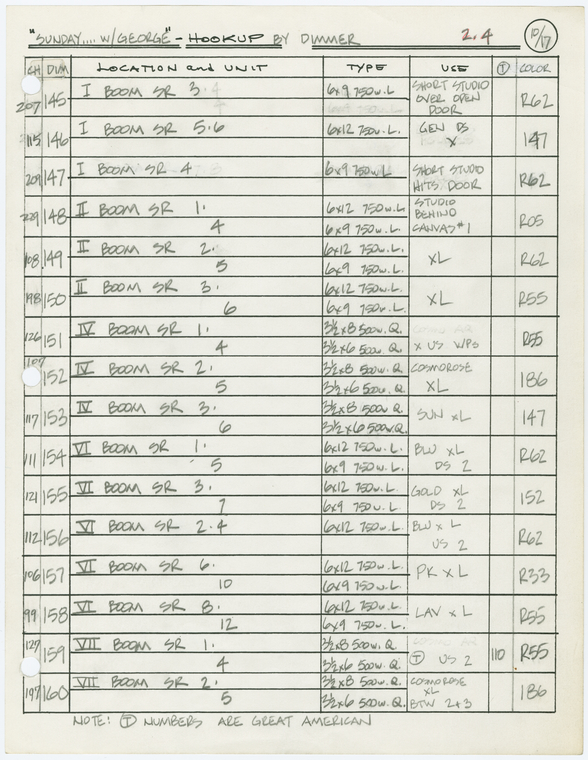 "SUNDAY.... W/GEORGE" - HOOKUP BY DIMMER 2.4 10/17
CH DIM LOCATION and UNIT TYPE USE T COLOR
207 145 I BOOM SR 3. 6x9 750w.L SHORT STUDIO OVER OPEN DOOR R62
115 146 I BOOM SR 5.6 6x12 750w.L. GEN DS X 147
209 147 I BOOM SR 4 6x9 750w.L SHORT STUDIO HITS DOOR R62
229 148 II BOOM SR 1. 6x12 750w.L. STUDIO BEHIND CANVAS #1 R05
4 6x9 750w.L.
108 149 II BOOM SR 2. 6x12 750w.L. XL R62
5 6x9 750w.L.
198 150 II BOOM SR 3. 6x12 750w.L. XL R55
6 6x9 750w.L.
126 151 IV BOOM SR 1. 3½x8 500w.Q. R55
4 3½x6 500w.Q. X US WPS
107 152 IV BOOM SR 2. 3½x8 500w.Q. COSMOROSE 186
5 3½x6 500w.Q. XL
117 153 IV BOOM SR 3. 3½x8 500w.Q. SUN XL 147
6 3½x6 500w.Q.
111 154 VI BOOM SR 1. 6x12 750w.L. BLU XL R62
5 6x9 750w.L. DS 2
121 155 VI BOOM SR 3. 6x12 750w.L. GOLD XL 152
7 6x9 750w.L DS 2
112 156 VI BOOM SR 2.4 6x12 750w.L. BLU X L R62
US 2
106 157 VI BOOM SR 6. 6x12 750w.L. PK X L R33
10 6x9 750w.L.
99 158 VI BOOM SR 8. 6x12 750w.L. LAV X L R55
12 6x9 750w.L.
127 159 VII BOOM SR 1. 3½x8 500w.Q. 110 R55
4 3½x6 500w.Q. T US 2
197 160 VII BOOM SR 2. 3½x8 500w.Q. COSMOROSE XL 186
5 3½x6 500w.Q. BTW 2+3
NOTE: T NUMBERS ARE GREAT AMERICAN